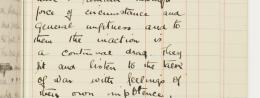 force of circumstance and
general unfitness and to
them the inaction is
a continual drag. They
sit and listen to the tales
of war with feelings of
their own impotence.